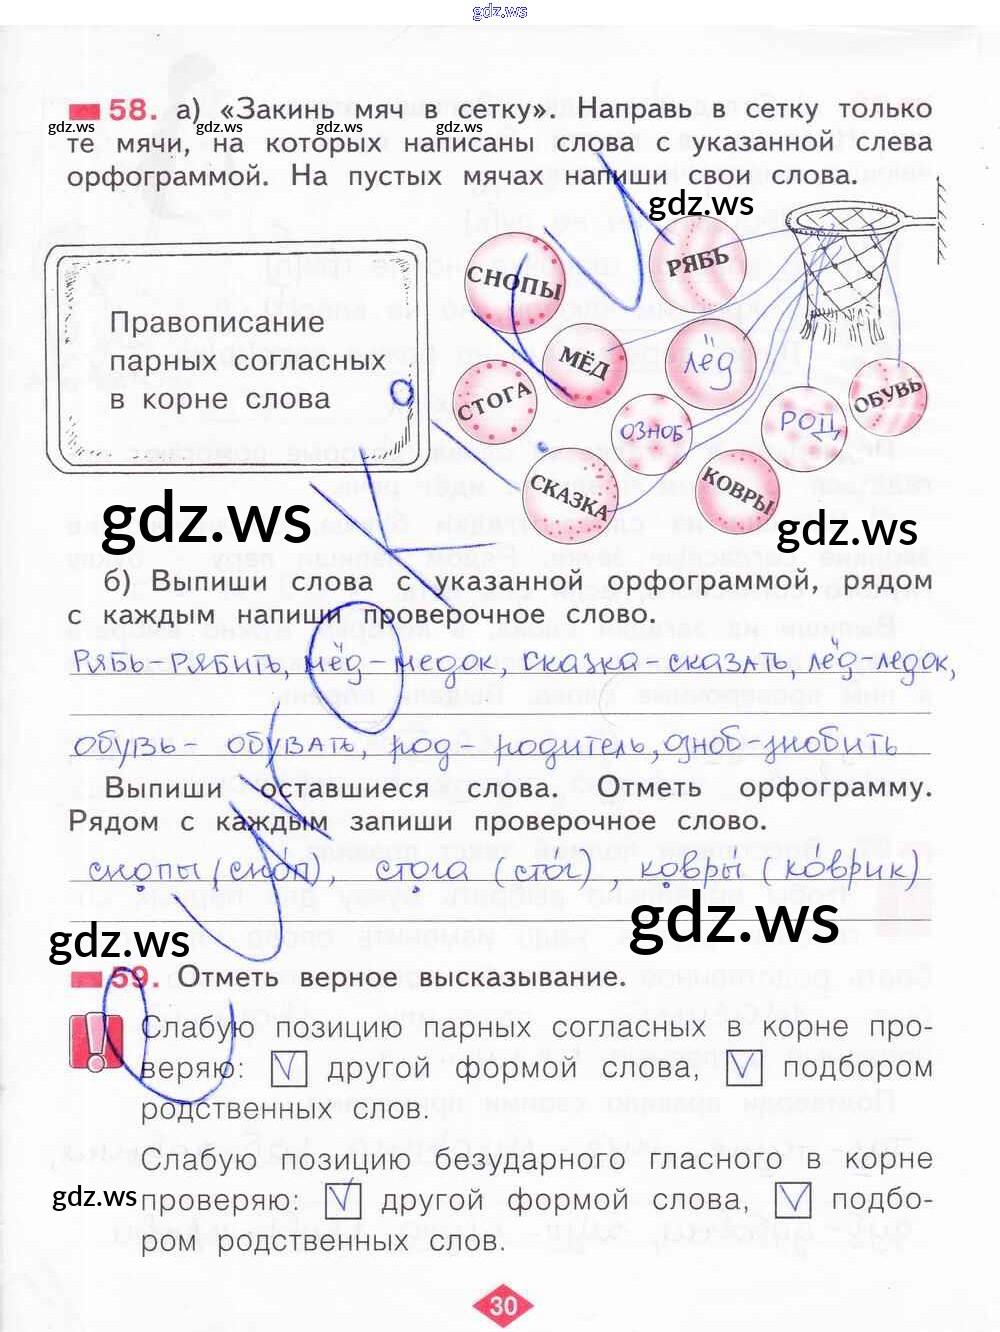 gdz.ws
58. а) «Закинь мяч в сетку». Направь в сетку только
gdz.ws gdz.ws gdz.ws gdz.ws
те мячи, на которых написаны слова с указанной слева
орфограммой. На пустых мячах напиши свои слова.
gdz.ws
Правописание
парных согласных
в корне слова
СНОПЫ
РЯБЬ
МЁД
лёд
СТОГА
ОЗНОБ
РОД
ОБУВЬ
СКАЗКА
КОВРЫ
gdz.ws
gdz.ws
б) Выпиши слова с указанной орфограммой, рядом
с каждым напиши проверочное слово.
Рябь-рябить, мёд-медок, сказка-сказать, лёд-ледок,
обувь- обувать, род-родитель, озноб-знобить
Выпиши оставшиеся слова. Отметь орфограмму.
Рядом с каждым запиши проверочное слово.
снопы (сноп), стога (стог), ковры (коврик)
gdz.ws
gdz.ws
59. Отметь верное высказывание.
Слабую позицию парных согласных в корне про-
веряю: V другой формой слова, V подбором
родственных слов.
Слабую позицию безударного гласного в корне
gdz.ws
проверяю: V другой формой слова, V подбо-
ром родственных слов.
30